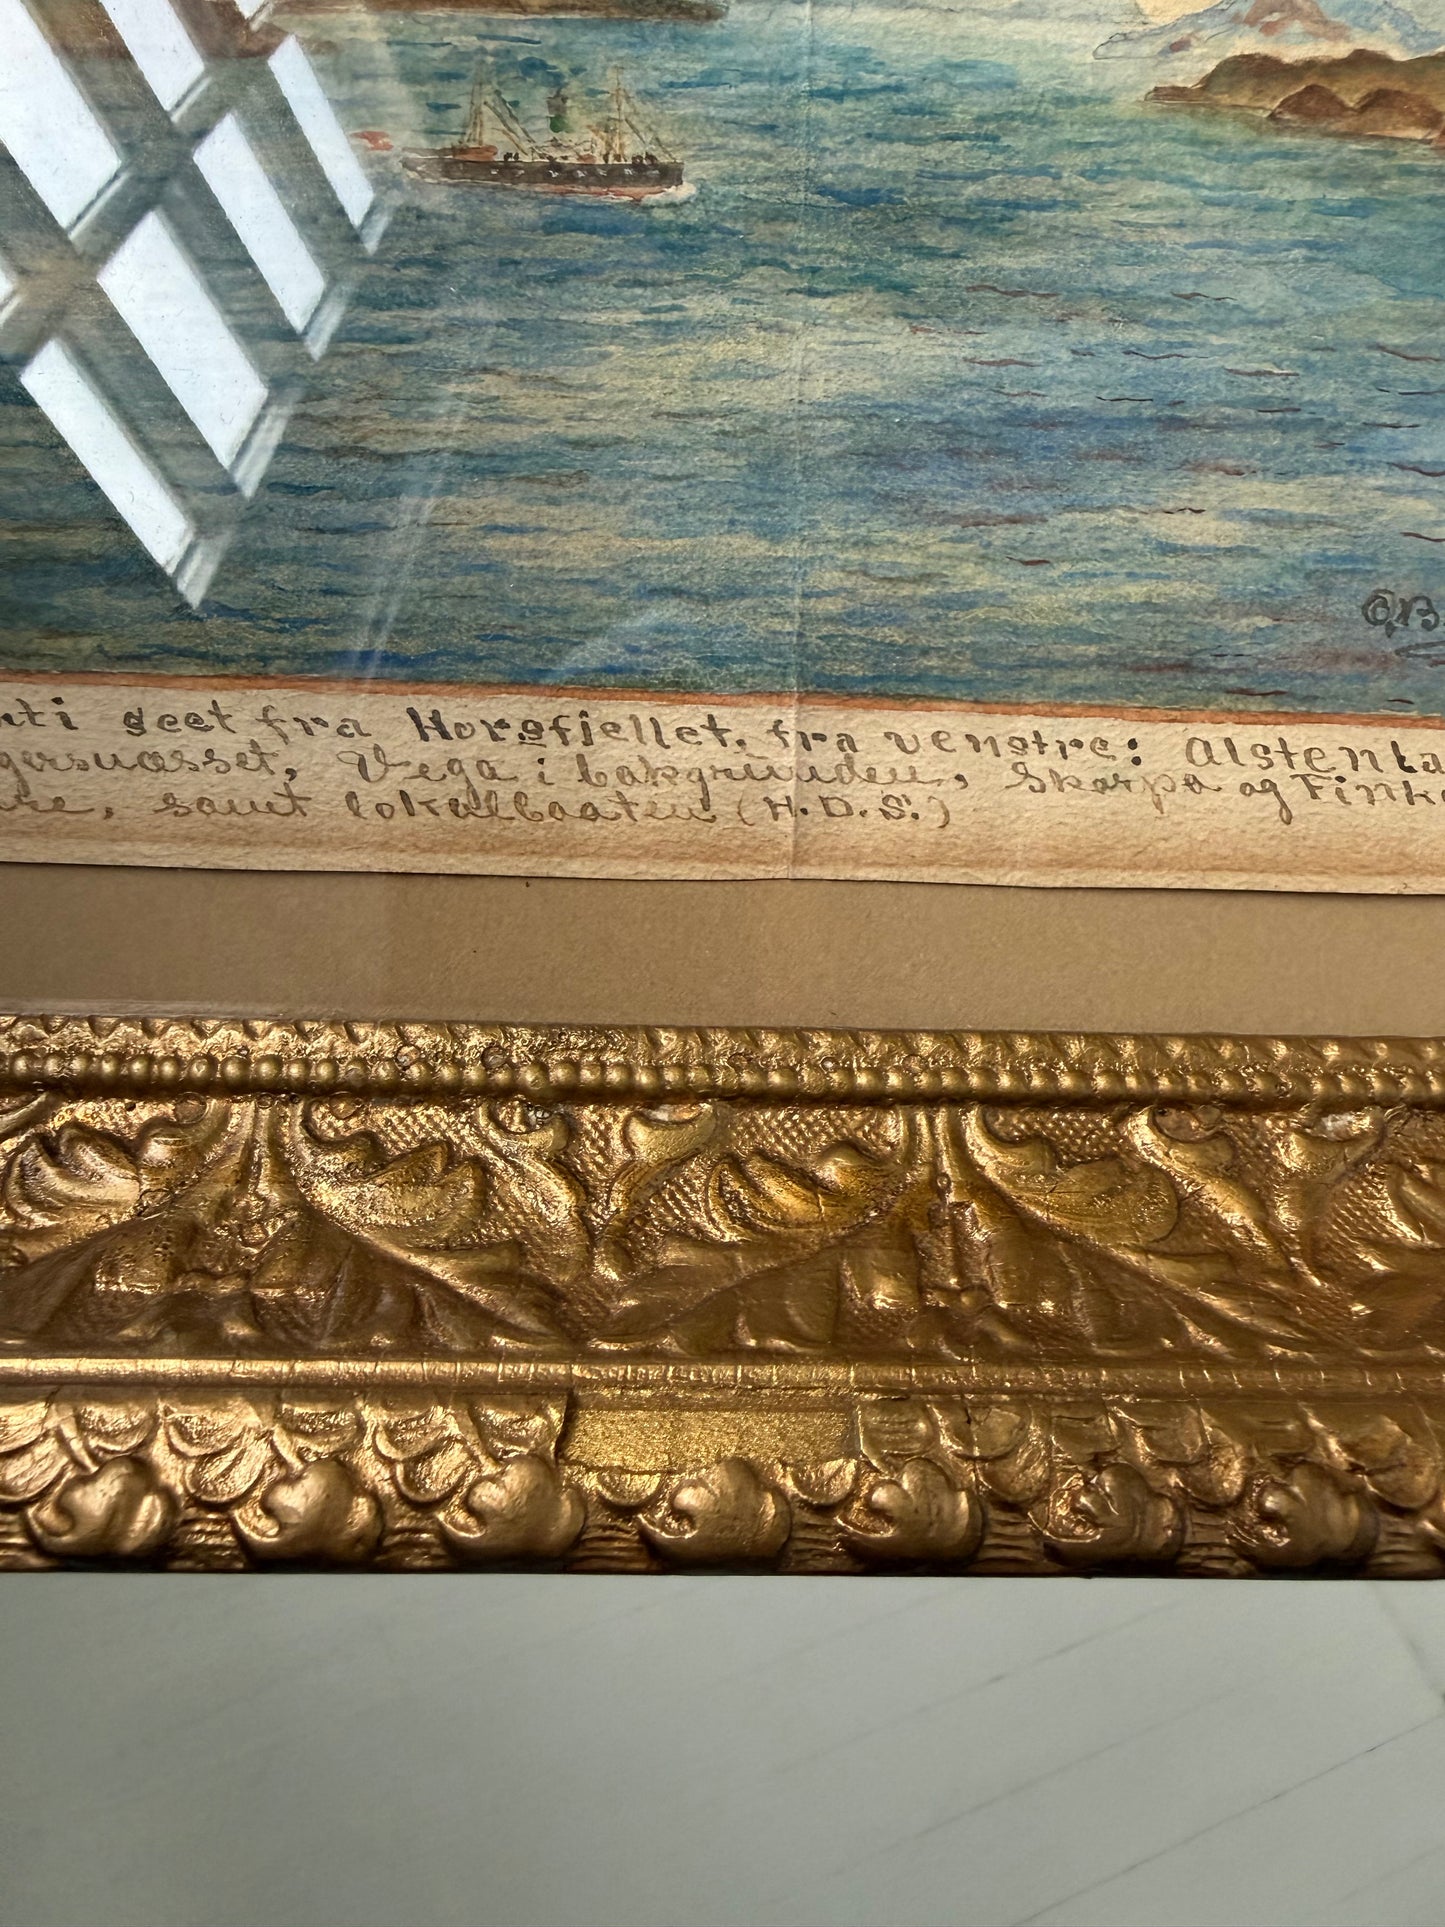 seet fra Horsfjellet, fra venstre: Alstenta
Vega i bakgrunden, Skarpa og Fink
samt lokalbaaten (H.D.S.)